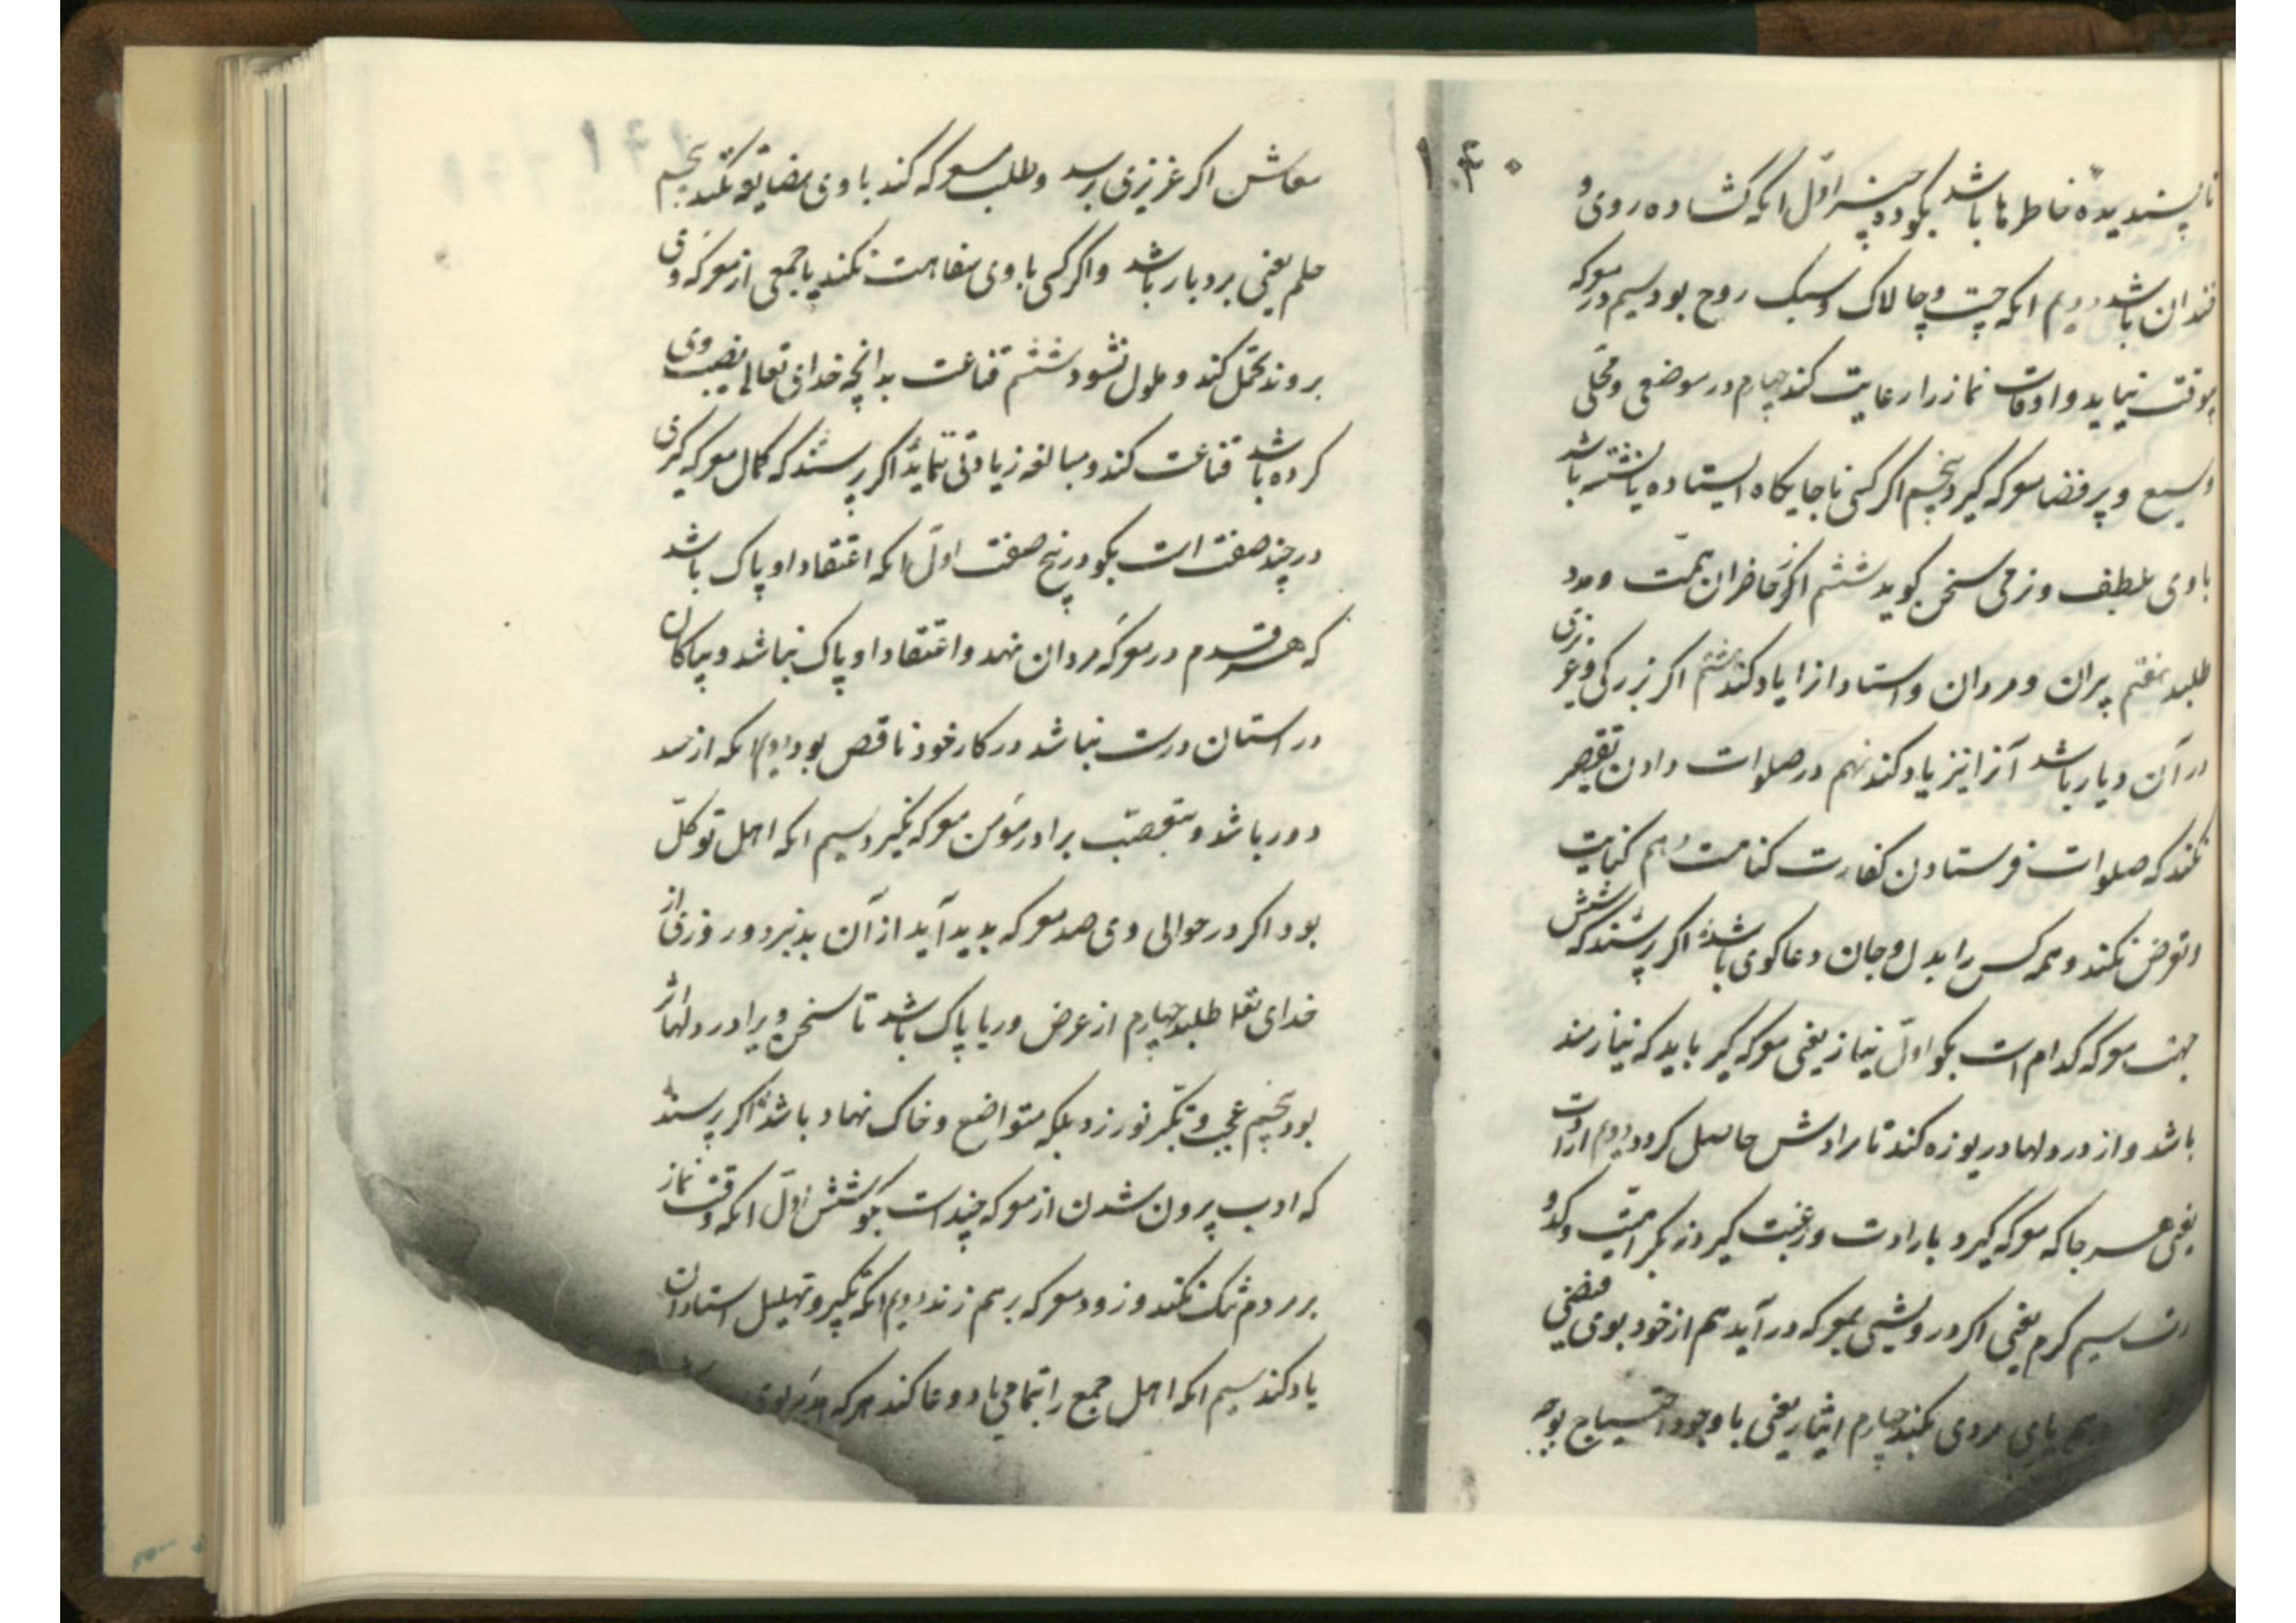 ۱۴۰
ناپسندیده خاطرها باشد بگو ده چیز اول انکه کشاده روی و
خندان باشد دویم انکه چست و چالاک و سبک روح بود سیم در معرکه
بیوقت نیاید و اوقات نماز را رعایت کند چهارم در موضعی و محلی
وسیع و پرفضا معرکه کیرد پنجم اکر کسی ناجایکاه ایستاده یا نشسته باشد
با وی بلطف و نرمی سخن کوید ششم اکر از حاضران همت و مدد
طلبد هفتم پیران و مردان و استادانرا یاد کند هشتم اکر بزرکی و عزیزی
در آن دیار باشد آنرا نیز یاد کند نهم در صلوات دادن تقصیر
نکند که صلوات فرستادن کفارت کناهست دهم کنایت
و تعرض نکند و همه کس را بدل و جان دعا کوی باشد اکر پرسند که شش
جهت معرکه کدام است بکو اول نیاز یعنی معرکه کیر باید که نیازمند
باشد و از در دلها دریوزه کند تا مرادش حاصل کردد دویم ارادت
یعنی هر جا که معرکه کیرد بارادت و رغبت کیرد نه بکراهیت و
سیم کرم یعنی اکر درویشی بمعرکه در آید هم از خود بوی فیضی
هم یای مردی بکند چهارم ایثار یعنی با وجود احتیاج بوجه
معاش اکر عزیزی برسد و طلب معرکه کند با وی مضایقه نکند پنجم
حلم یعنی بردبار باشد و اکر کسی با وی سفاهت نکند یا جمعی از معرکه وی
بروند تحمل کند و ملول نشود ششم قناعت بدانچه خدای تعالی نصیب وی
کرده باشد قناعت کند و مبالغه زیادتی ننماید اکر پرسند که کمال معرکه کیری
در چند صفت است بکو در پنج صفت اول انکه اعتقاد او پاک باشد
که هر قدم در معرکه مردان نهد و اعتقاد او پاک نباشد و بپاکان
و راستان درست نباشد در کار خود ناقص بود دویم انکه از حسد
دور باشد و بتعصب برادر مؤمن معرکه نکیرد سیم انکه اهل توکل
بود اکر در حوالی وی صد معرکه پدید آید از آن بد نبرد و روزی از
خدای تعلا طلبد چهارم از عرض و ریا پاک باشد تا سخن ویرا در دلها اثر
بود پنجم عجب و تکبر نورزد بلکه متواضع و خاک نهاد باشد اکر پرسند
که ادب بیرون شدن از معرکه چند است بکو شش اول انکه وقت نماز
بر مردم تنک نکند و زود معرکه بر هم زند دویم انکه تکبیر و تهلیل استادان
یاد کند سیم انکه اهل جمع را بتمامی یاد و دعا کند هر که